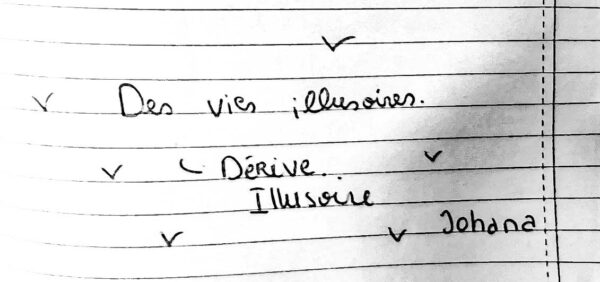 Des vies illusoires.
Dérive..
Illusoire
Johana